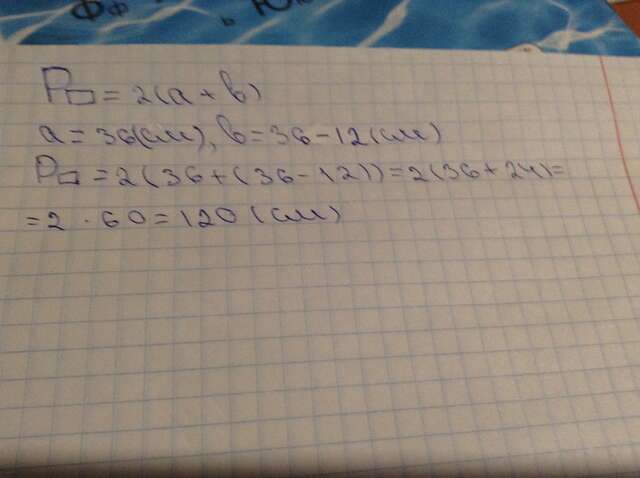 Фф ь Ю
P▭ = 2(a + b)
a = 36(см), b = 36 - 12 (см)
P▭ = 2(36 + (36 - 12)) = 2(36 + 24) =
= 2 · 60 = 120 (см)